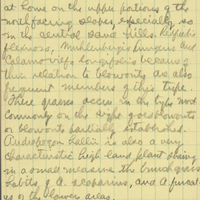 at home on the upper portions of the
north facing slopes especially so
in the central sand hills. Redfieldia
flexuosa, Muhlenbergia pungens and
Calamovilfa longifolia because of
their relation to blowouts are also
frequent members of this type.
These grasses occur in the type most
commonly on the edges of blowouts
or blowouts partially established.
Andropogon Hallii is also a very
characteristic high land plant sharing
in a small measure the bunch grass
habits of A. scoparius, and A. furcat
us of the lower areas.